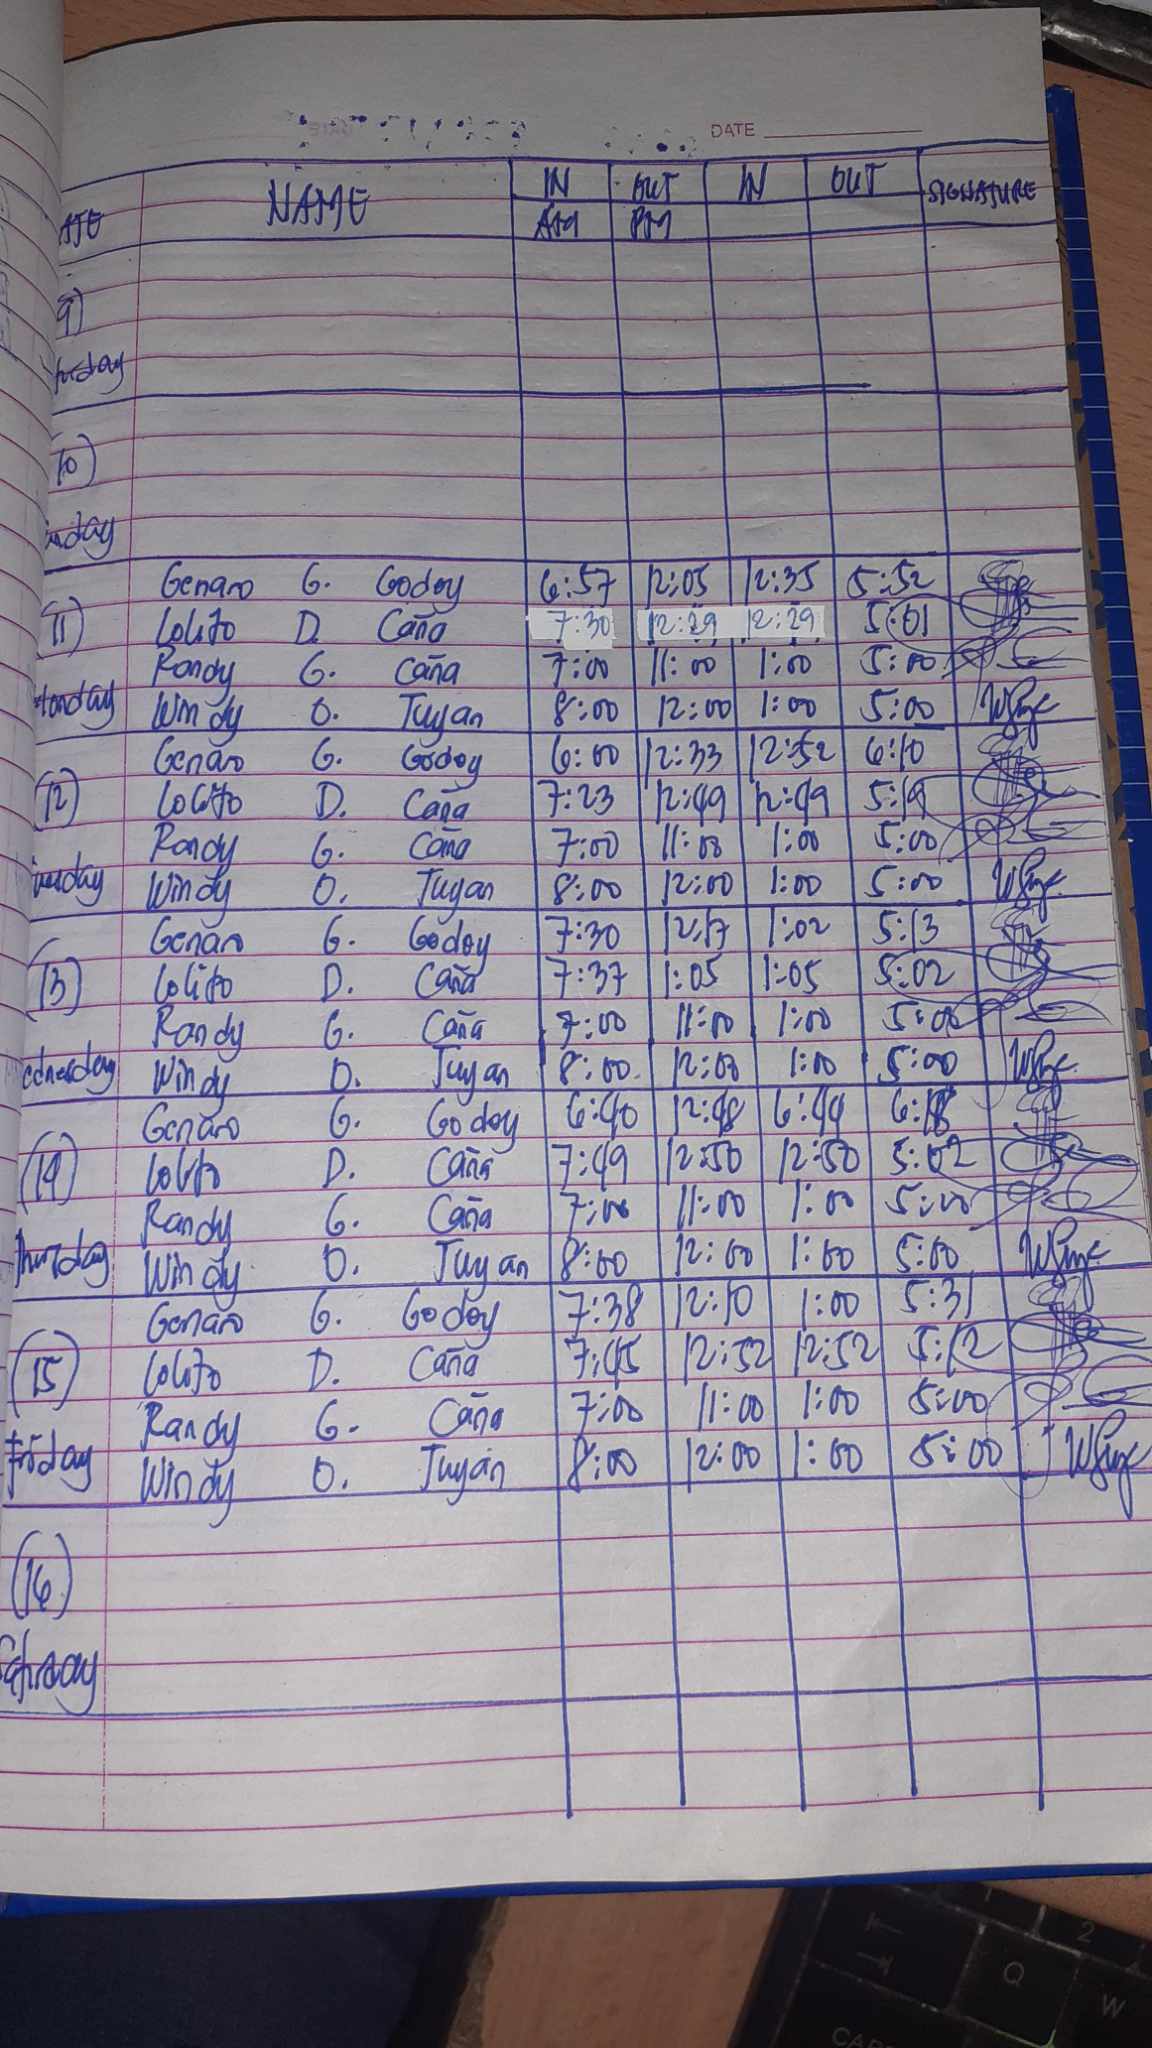 DATE
NAME IN OUT IN OUT SIGNATURE
AM PM
9)
10)
Genaro G. Godoy 6:57 12:05 12:35 5:52
11) Lolito D. Caña 7:30 12:29 12:29 5:01
Randy G. Caña 7:00 11:00 1:00 5:00
Windy O. Tuyan 8:00 12:00 1:00 5:00
Genaro G. Godoy 6:00 12:33 12:52 6:10
(12) Lolito D. Caña 7:23 12:49 12:49 5:19
Randy G. Caña 7:00 11:00 1:00 5:00
Windy O. Tuyan 8:00 12:00 1:00 5:00
Genaro G. Godoy 7:30 12:17 1:02 5:13
(13) Lolito D. Caña 7:37 1:05 1:05 5:02
Randy G. Caña 7:00 11:00 1:00 5:00
Windy O. Tuyan 8:00 12:00 1:00 5:00
Genaro G. Godoy 6:40 12:48 6:44
(14) Lolito D. Caña 7:49 12:50 12:50 5:02
Randy G. Caña 7:00 11:00 1:00 5:00
Thursday Windy O. Tuyan 8:00 12:00 1:00 5:00
Genaro G. Godoy 7:38 12:10 1:00 5:31
(15) Lolito D. Caña 7:45 12:52 12:52 5:12
Randy G. Caña 7:00 11:00 1:00 5:00
Friday Windy O. Tuyan 8:00 12:00 1:00 5:00
(16)
2
Q
W